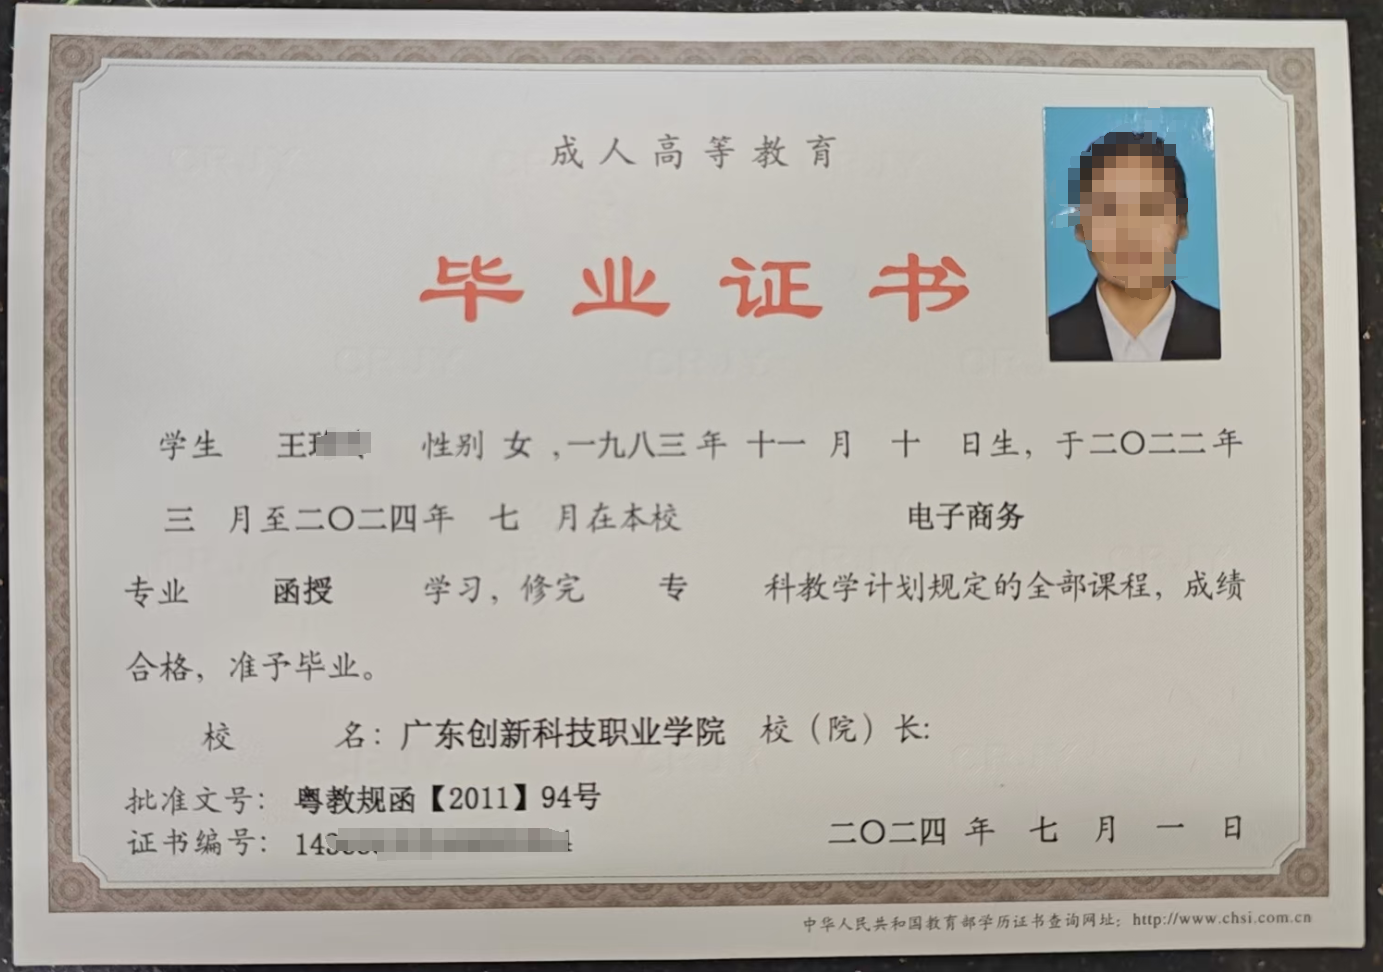 成人高等教育
毕业证书
学生 王 性别 女 ,一九八三年 十一 月 十 日生, 于二〇二二年
三 月至二〇二四年 七 月在本校 电子商务
专业 函授 学习, 修完 专 科教学计划规定的全部课程, 成绩
合格, 准予毕业。
校 名: 广东创新科技职业学院 校（院）长:
批准文号: 粤教规函【2011】94号
证书编号: 14
二〇二四 年 七 月 一 日
中华人民共和国教育部学历证书查询网址: http://www.chsi.com.cn